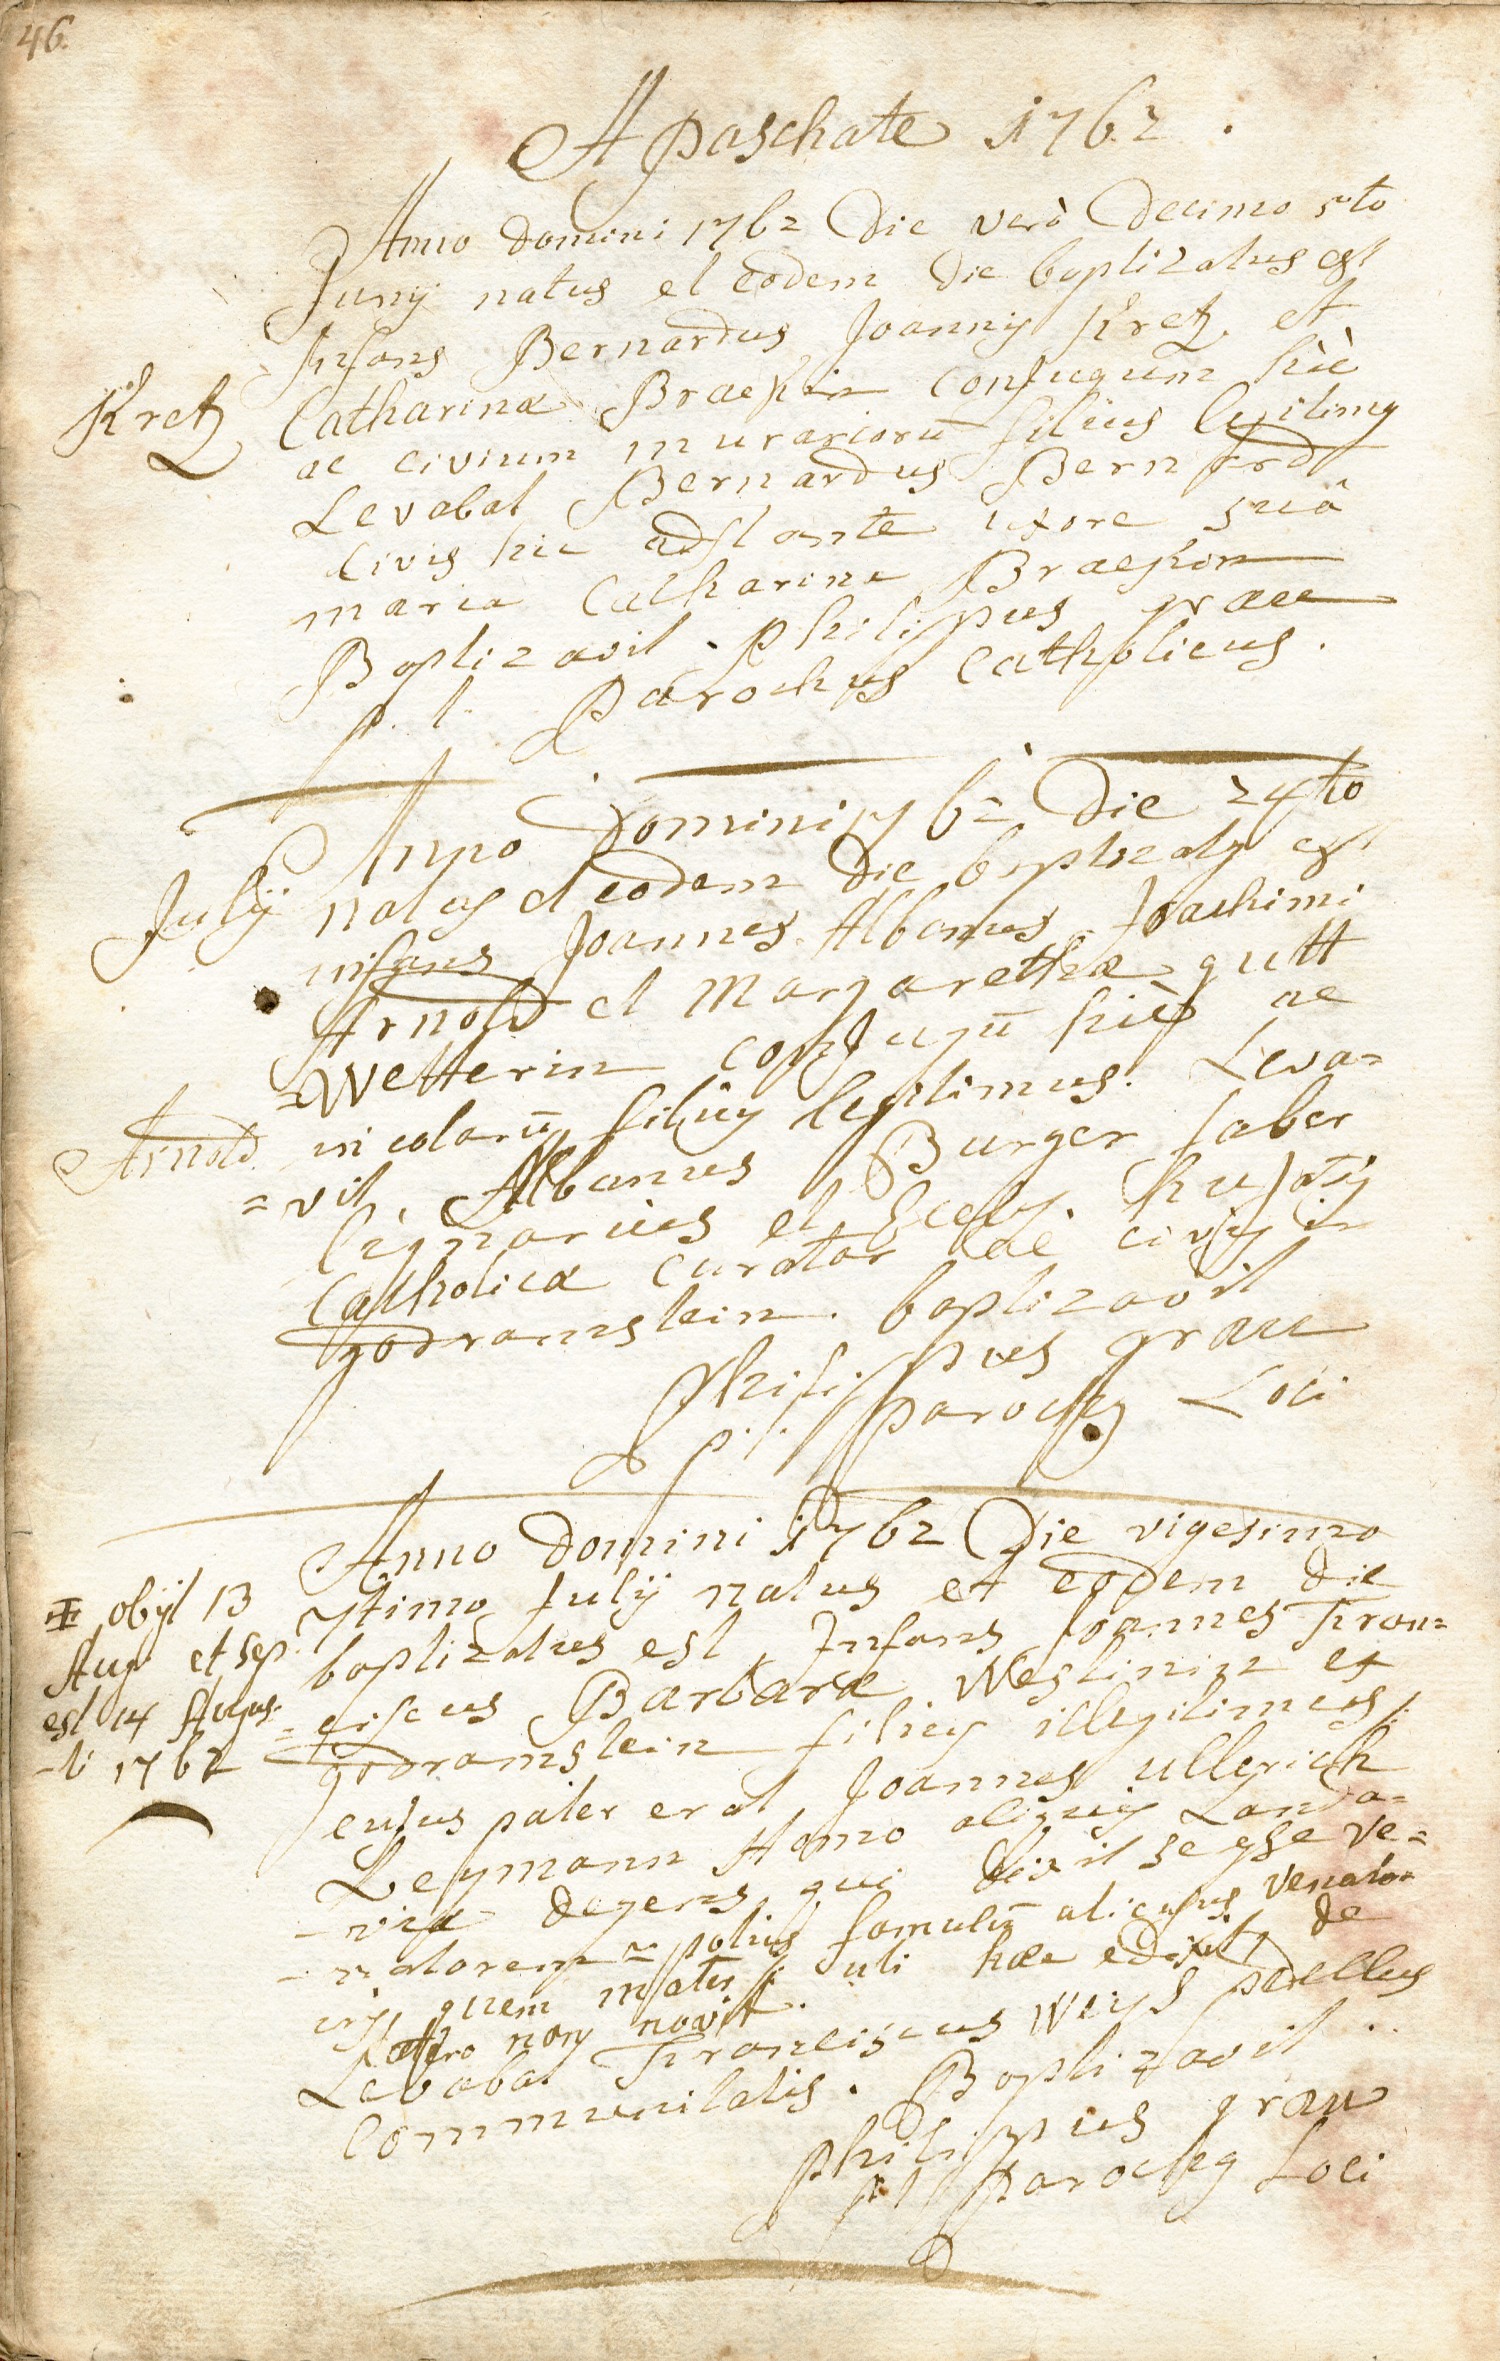 46.
A paschate 1762.
Anno domini 1762 die verò Decimo 5to
Junÿ natus et eodem die baptizatus est
Infans Bernardus Joannis Kretz et
Kretz
Catharinæ Braekin conjugum hìc
ac civium murariorū filius legitimg
Levabat Bernardus Bernhard
civis hic adstante uxore suâ
maria Catharina Braekon
Baptizavit. Philippus grau
p. t. Parochus Catholicus.
Anno Domini 1762 die 24to
Julÿ natus et eodem die baptizatg est
infans Joannes Albanus Joachimi
Arnold et Margarethæ gutt
=Wetterin conjugū hìc ac
Arnold
incolarū filius legitimus. Leva=
=vit, Albanus Burger faber
lignarius et Eccles. hujatis
Catholicæ curator ac civis in
godramstein. baptizavit
Philippus grau
p. t. parochg Loci
Anno domini 1762 Die vigesimo
7timo Julÿ natus et eodem die
baptizatus est Infans Joannes Fran=
=ciscus Barbaræ Weslinin ex
godramstein filius illegitimus,
cujus pater erat Joannes ullerich
Leymann Homo alienig Landa=
=viæ degens, qui dixit se esse ve=
=natorem potius famulū alicujus venato=
=ris, quem mater, uti hæc edixit, de
facto non novit.
Levabat Franciscus Weiss pedellus
Communitatis. Baptizavit
philippus grau
p t parochg Loci
obÿt 13
Aug et sep.
est 14 Augus-
-ti 1762